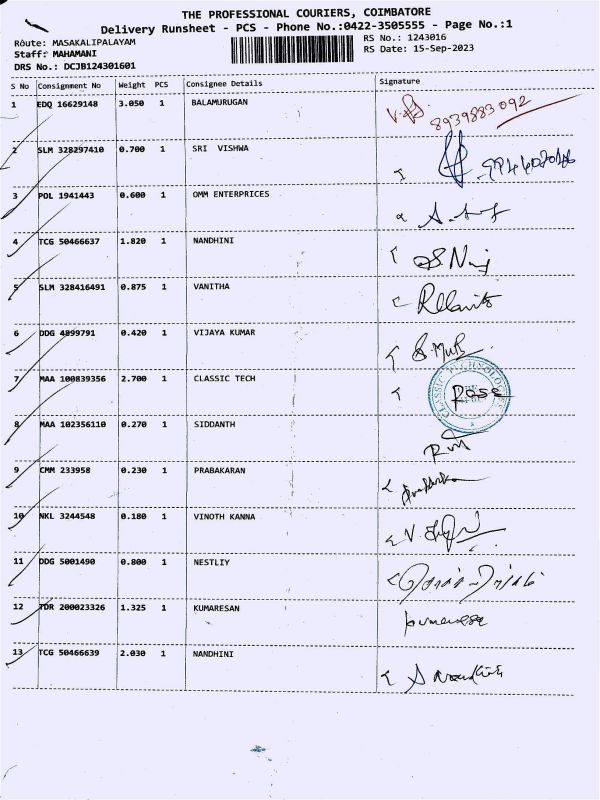 THE PROFESSIONAL COURIERS, COIMBATORE
Delivery Runsheet - PCS - Phone No.:0422-3505555 - Page No.:1
Route: MASAKALIPALAYAM
RS No.: 1243016
Staff: MAHAMANI
RS Date: 15-Sep-2023
DRS No.: DCJB124301601
S No Consignment No Weight PCS Consignee Details Signature
1 EDQ 16629148 3.050 1 BALAMURUGAN
8939883092
2 SLM 328297410 0.700 1 SRI VISHWA
3 POL 1941443 0.600 1 OMM ENTERPRICES
4 TCG 50466637 1.820 1 NANDHINI
5 SLM 328416491 0.875 1 VANITHA
6 DDG 4899791 0.420 1 VIJAYA KUMAR
7 MAA 100839356 2.700 1 CLASSIC TECH
Rose
8 MAA 102356110 0.270 1 SIDDANTH
9 CMM 233958 0.230 1 PRABAKARAN
10 NKL 3244548 0.180 1 VINOTH KANNA
11 DDG 5001490 0.800 1 NESTLIY
12 TDR 200023326 1.325 1 KUMARESAN
13 TCG 50466639 2.030 1 NANDHINI